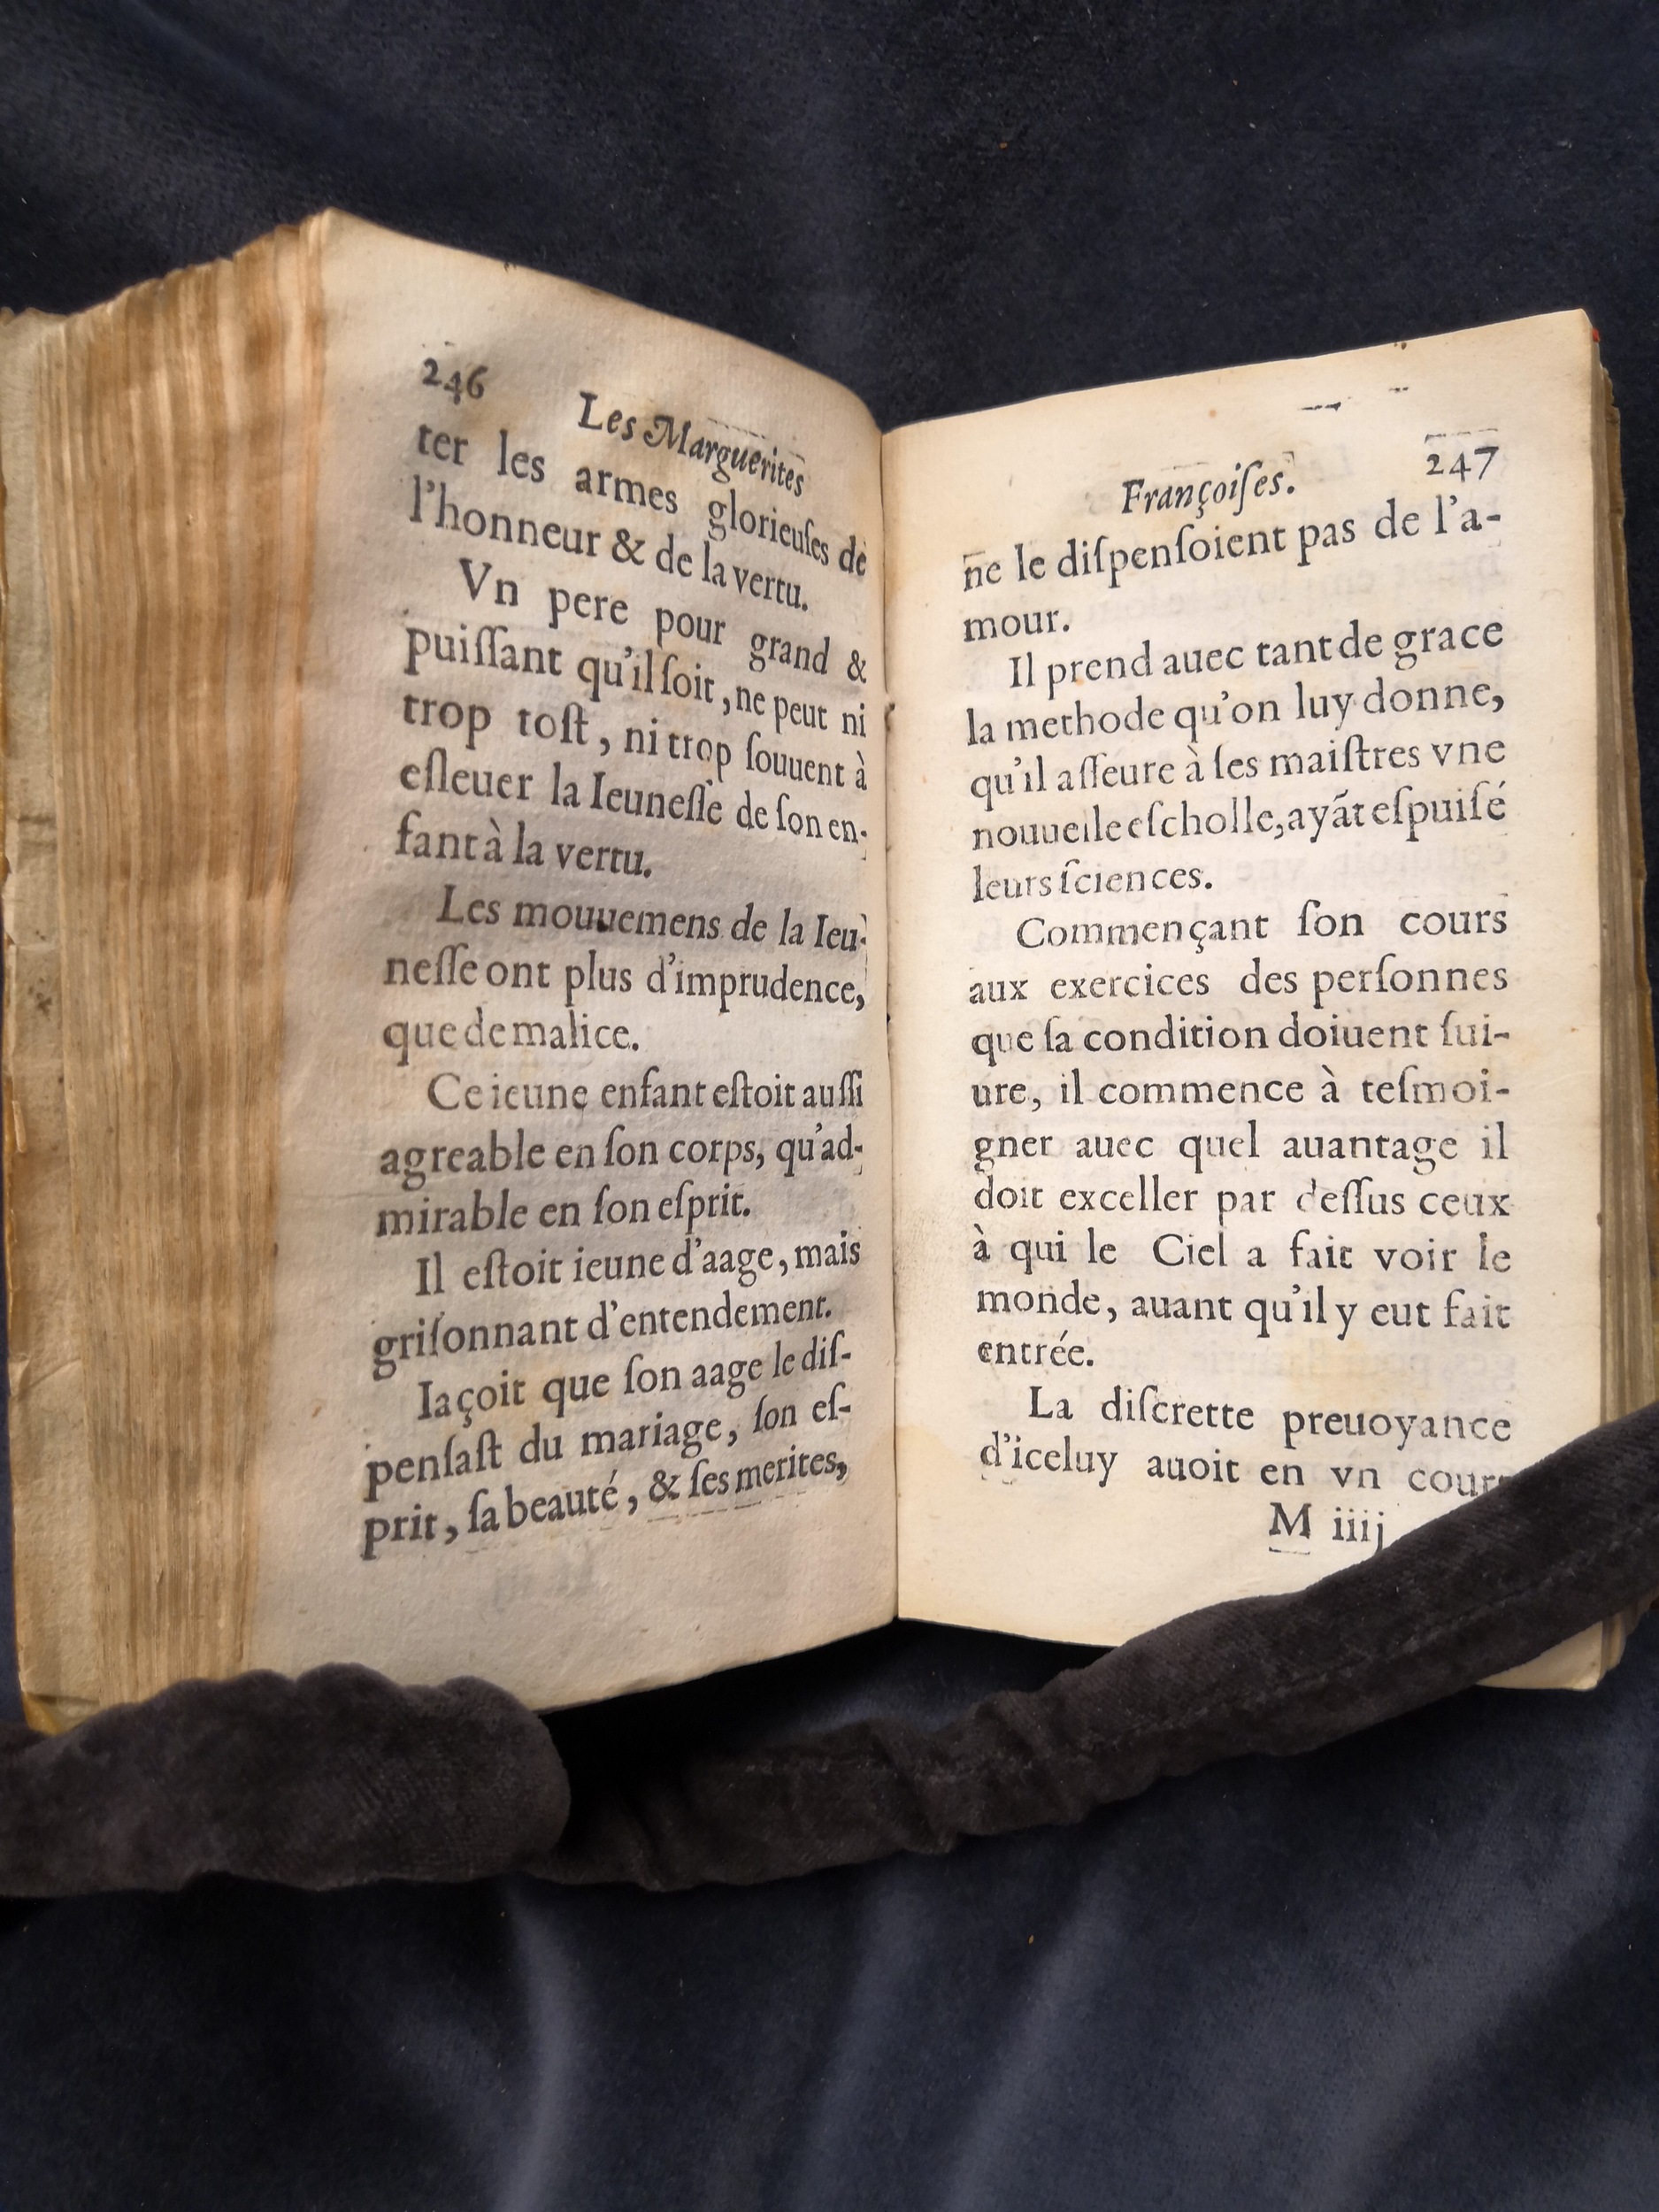 246 Les Marguerites
ter les armes glorieuſes de
l'honneur & de la vertu.
Vn pere pour grand &
puiſſant qu'il ſoit, ne peut ni
trop toſt, ni trop ſouuent à
eſleuer la Ieuneſſe de ſon en-
fant à la vertu.
Les mouuemens de la Ieu-
neſſe ont plus d'imprudence,
que de malice.
Ce ieune enfant eſtoit auſſi
agreable en ſon corps, qu'ad-
mirable en ſon eſprit.
Il eſtoit ieune d'aage, mais
griſonnant d'entendement.
Iaçoit que ſon aage le diſ-
penſaſt du mariage, ſon eſ-
prit, ſa beauté, & ſes merites,
Françoiſes. 247
ne le diſpenſoient pas de l'a-
mour.
Il prend auec tant de grace
la methode qu'on luy donne,
qu'il aſſeure à ſes maiſtres vne
nouuelle eſcholle, ayãt eſpuiſé
leurs ſciences.
Commençant ſon cours
aux exercices des perſonnes
que ſa condition doiuent ſui-
ure, il commence à teſmoi-
gner auec quel auantage il
doit exceller par deſſus ceux
à qui le Ciel a fait voir le
monde, auant qu'il y eut fait
entrée.
La diſcrette preuoyance
d'iceluy auoit en vn cours
M iiij